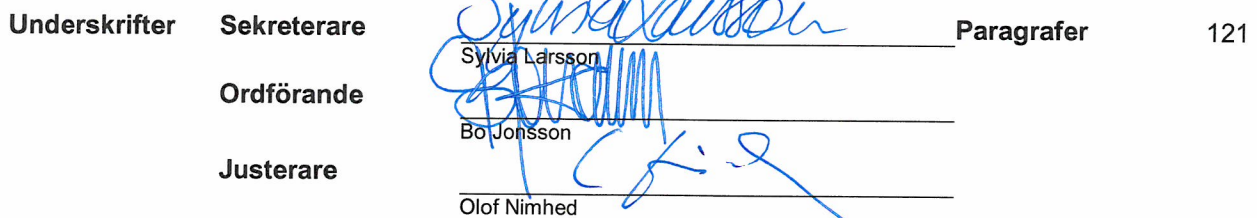 Underskrifter Sekreterare Sylvia Larsson Paragrafer 121
Sylvia Larsson
Ordförande
Bo Jonsson
Justerare
Olof Nimhed